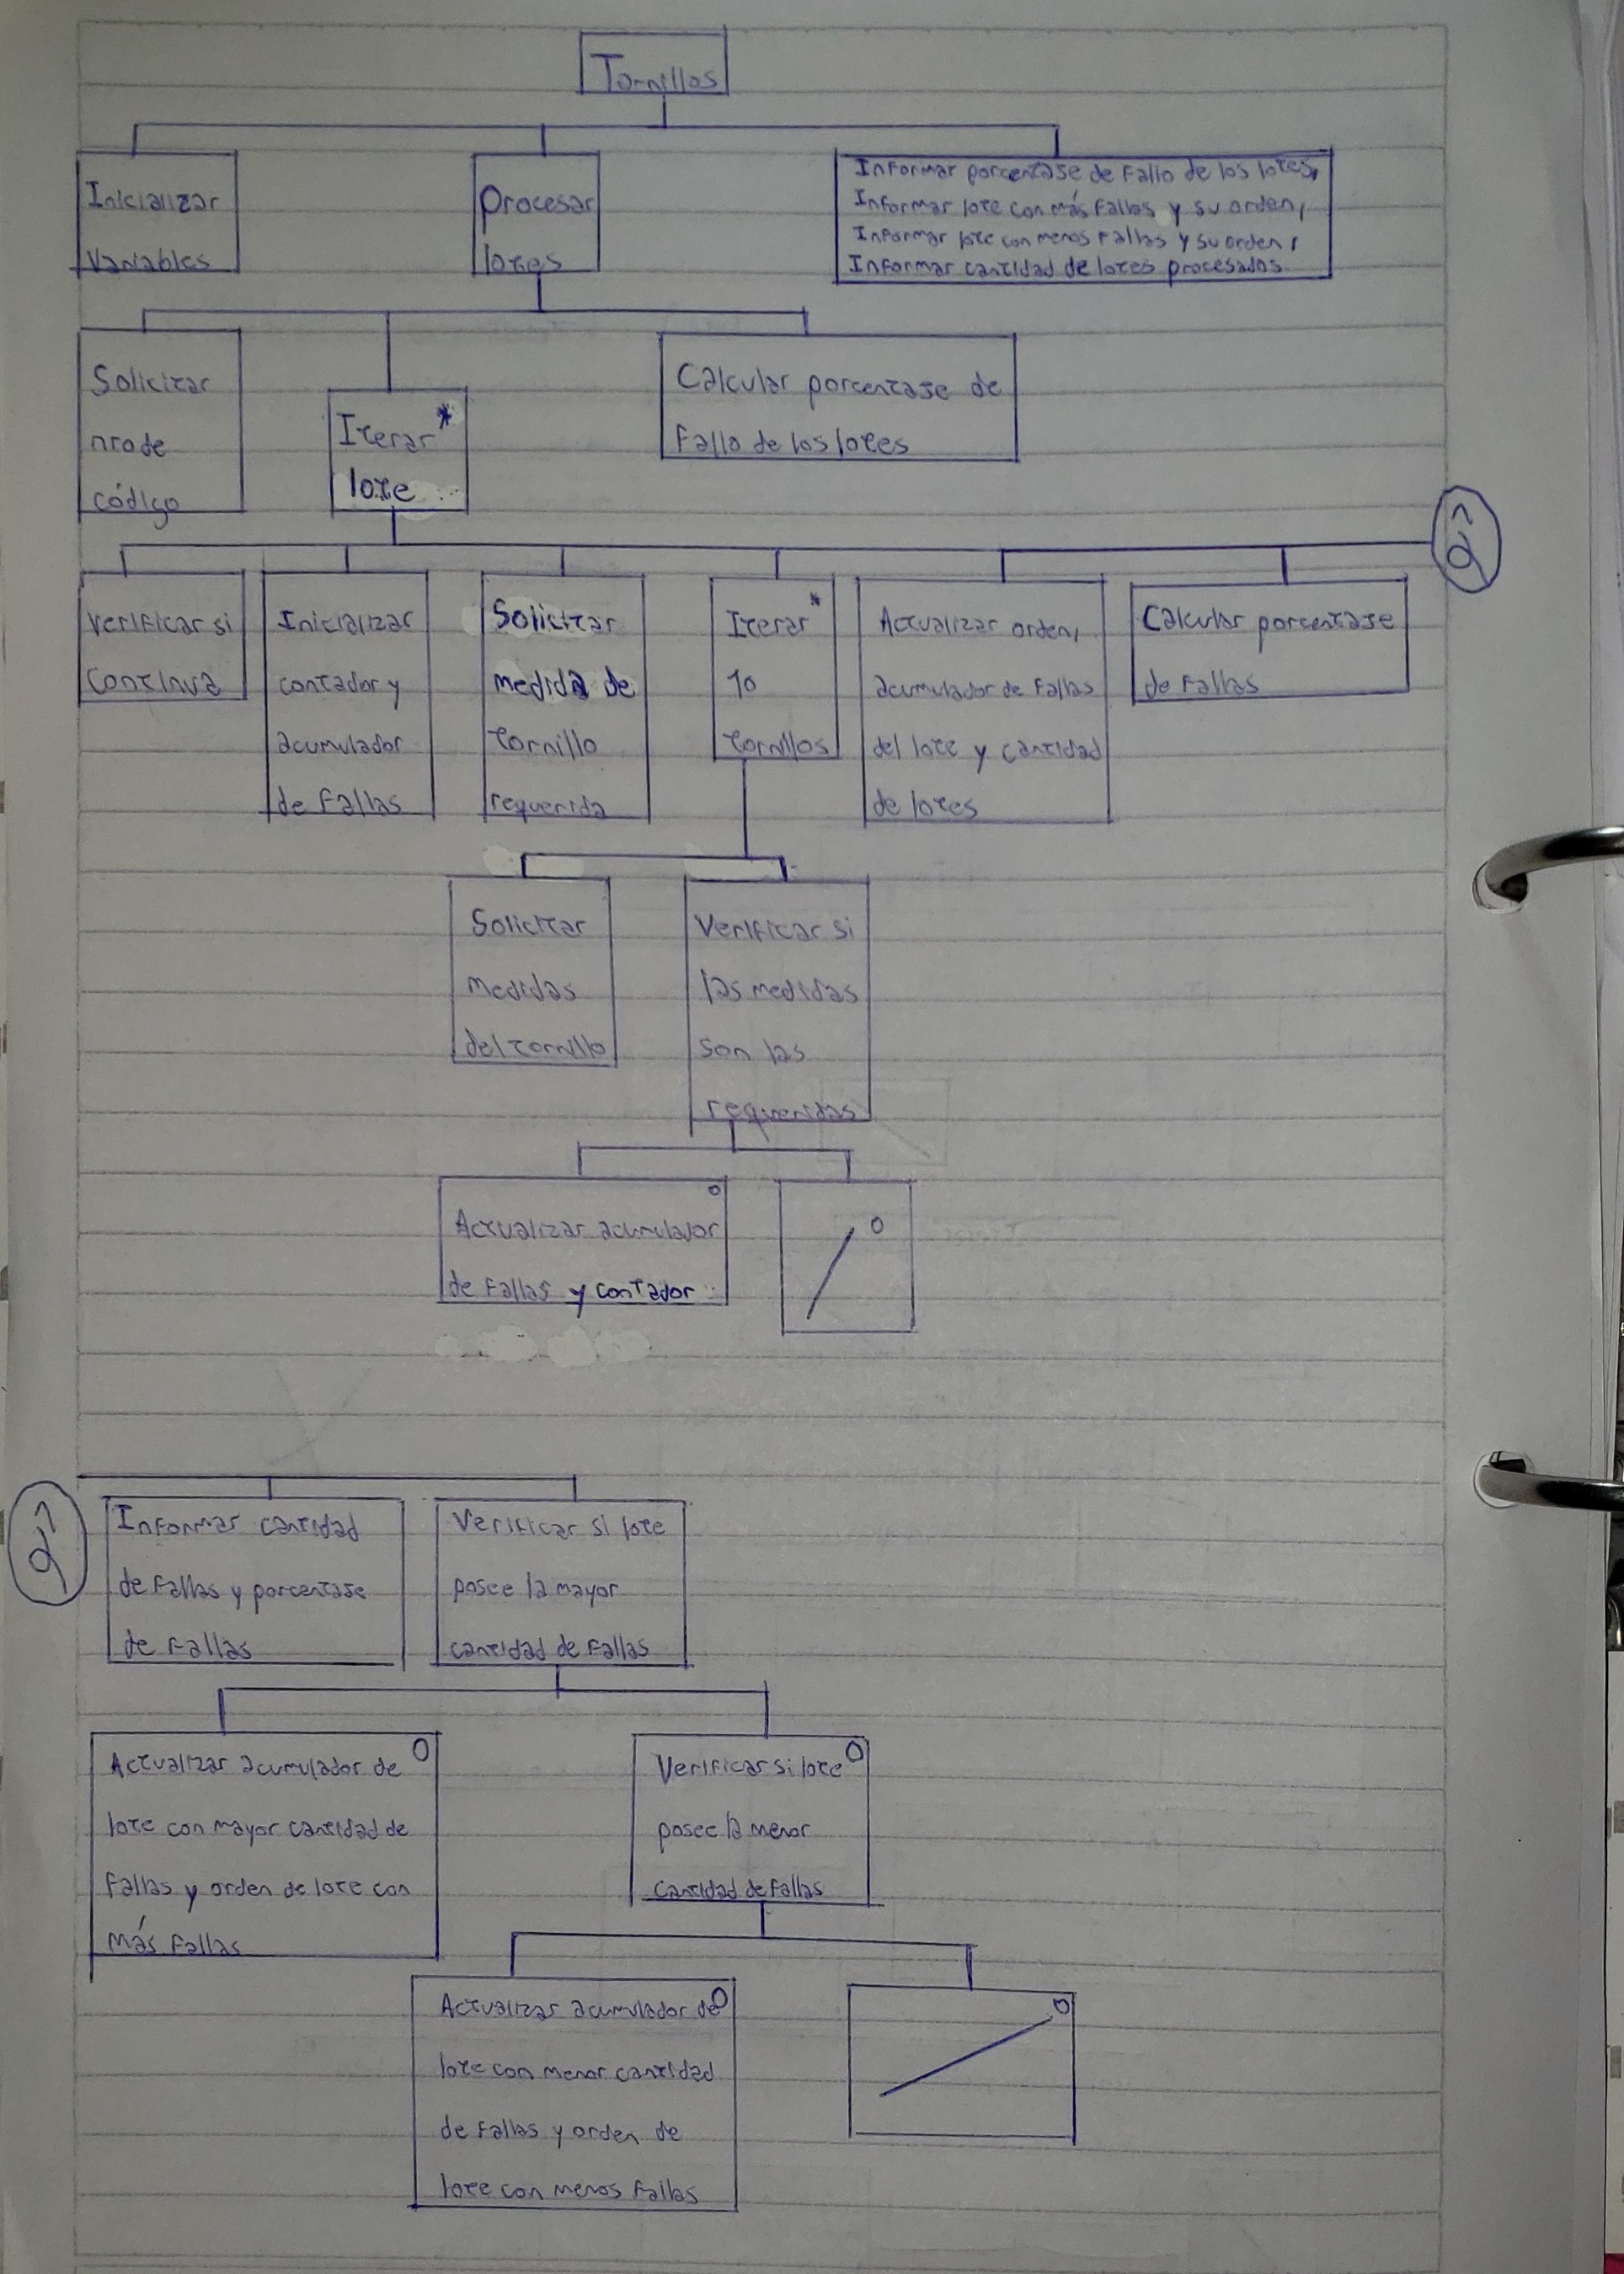 Tornillos
Inicializar
Variables
Procesar
lotes
Informar porcentaje de fallo de los lotes,
Informar lote con más fallas y su orden,
Informar lote con menos fallas y su orden,
Informar cantidad de lotes procesados.
Solicitar
nro de
código
Iterar *
lote
Calcular porcentaje de
fallo de los lotes
Verificar si
continua
Inicializar
contador y
acumulador
de fallas
Solicitar
medida de
tornillo
requerida
Iterar *
10
tornillos
Actualizar orden,
acumulador de fallas
del lote y cantidad
de lotes
Calcular porcentaje
de fallas
Solicitar
medidas
del tornillo
Verificar si
las medidas
son las
requeridas
Actualizar acumulador
de fallas y contador
Informar cantidad
de fallas y porcentaje
de fallas
Verificar si lote
posee la mayor
cantidad de fallas
Actualizar acumulador de
lote con mayor cantidad de
fallas y orden de lote con
más fallas
Verificar si lote
posee la menor
cantidad de fallas
Actualizar acumulador de
lote con menor cantidad
de fallas y orden de
lote con menos fallas